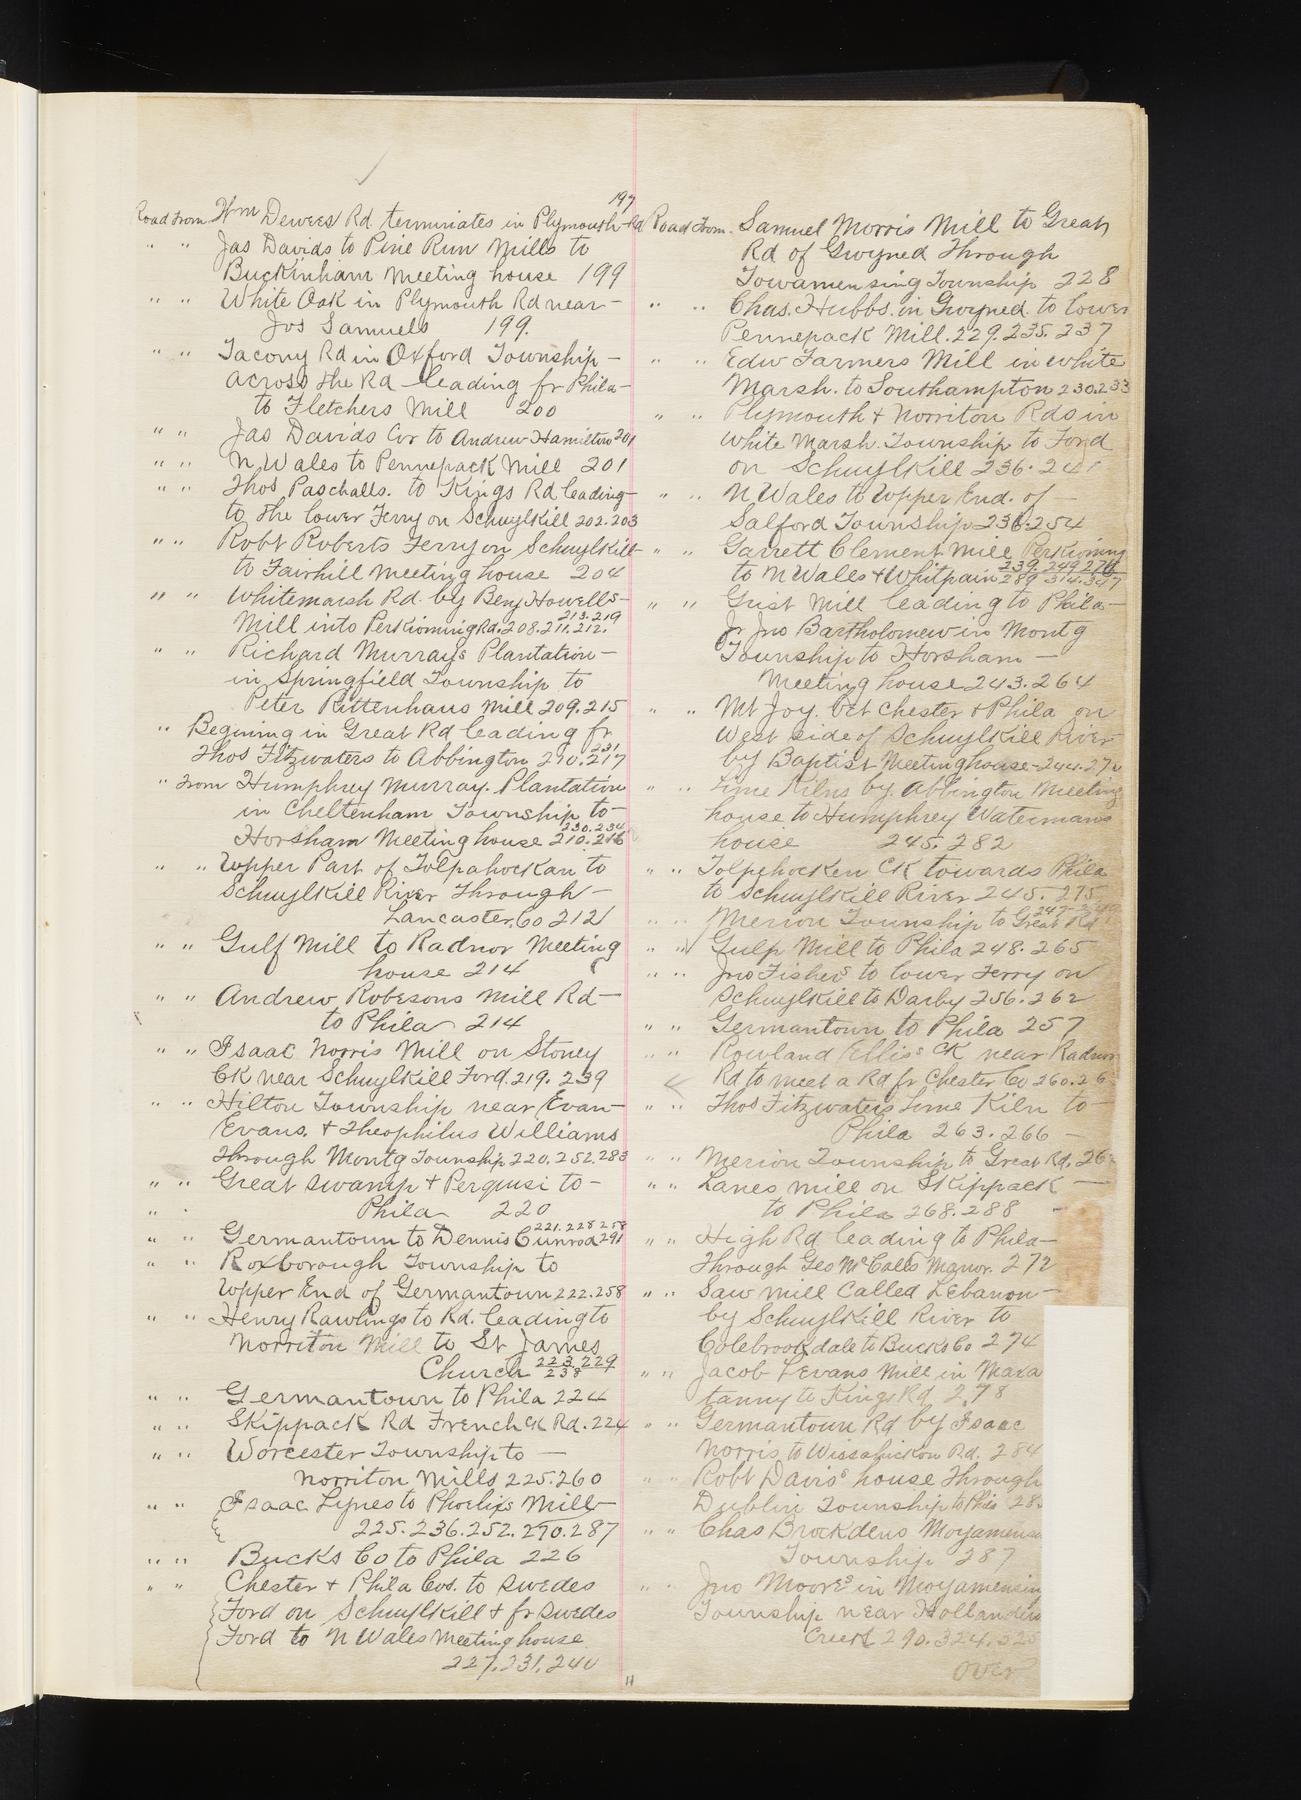 197
Road From Wm Dewees Rd. terminates in Plymouth Rd
" " Jas Davids to Pine Run Mills to
Buckinham Meeting house 199
" " White Oak in Plymouth Rd near
Jos Samuels 199.
" " Tacony Rd in Oxford Township
across the Rd leading fr Phila
to Fletchers Mill 200
" " Jas Davids Cor to Andrew Hamilton 201
" " N Wales to Pennepack Mill 201
" " Thos Paschalls. to Kings Rd leading
to the lower Ferry on Schuylkill 202.203
" " Robt Roberts Ferry on Schuylkill
to Fairhill Meeting house 204
" " Whitemarsh Rd. by Benj Howells
213.219
Mill into Perkioming Rd. 208.211.212.
" " Richard Murrays Plantation
in Springfield Township to
Peter Rittenhaus Mill 209.215
" Begining in Great Rd leading fr
231
Thos Fitzwaters to Abbington 210.217
" From Humphrey Murray. Plantation
in Cheltenham Township to
230.234
Horsham Meeting house 210.216
" " Upper Part of Tolpahockan to
Schuylkill River Through
Lancaster Co 212
" " Gulf Mill to Radnor Meeting
house 214
" " Andrew Robesons Mill Rd
to Phila 214
" " Isaac Norris Mill on Stoney
CK near Schuylkill Ford. 219. 239
" " Hilton Township near Evan
Evans. & Theophilus Williams
Through Montg Township 220.252.283
" " Great Swamp & Perquisi to
" " Phila 220
221.228.258
" " Germantown to Dennis Cunrod 291
" " Roxborough Township to
Upper End of Germantown 222.258
" " Henry Rawlings to Rd. leading to
Norriton Mill to St James
Church 223.229
238
" " Germantown to Phila 224
" " Skippack Rd French CK Rd. 224
" " Worcester Township to
Norriton Mills 225.260
" " Isaac Lynes to Phoelixs Mill
225.236.252.270.287
" " Bucks Co to Phila 226
" " Chester & Phila Cos. to Swedes
Ford on Schuylkill & fr Swedes
Ford to N Wales Meeting house
227.231.240
Road From. Samuel Morris Mill to Great
Rd of Gwyned Through
Towamensing Township 228
" " Chas. Hubbs. in Gwyned. to lower
Pennepack Mill. 229.235.237
" " Edw Farmers Mill in White
Marsh. to Southampton 230.233
" " Plymouth & Norriton Rds in
White Marsh. Township to Ford
on Schuylkill 236.241
" " N Wales to Upper End. of
Salford Township 236.254
" " Garrett Clement Mill Perkioming
239.249.276
to N Wales & Whitpain 289 314.347
" " Grist Mill leading to Phila
Jr Jno Bartholomew in Montg
Township to Horsham
Meeting house 243.264
" " Mt Joy. bet Chester & Phila on
West side of Schuylkill River
by Baptist Meeting house 244.27
" " Lime Kilns by. Abbington Meeting
house to Humphrey Watermans
house 245.282
" " Tolpehocken CK towards Phila
to Schuylkill River 245.275
" " Merion Township to Great Rd
" " Gulp Mill to Phila 248.265
" " Jno Fishers to lower Ferry on
Schuylkill to Darby 256.262
" " Germantown to Phila 257
" " Rowland Ellis's CK near Radnor
Rd to meet a Rd fr Chester Co 260.26
" " Thos Fitzwaters Lime Kiln to
Phila 263.266
" " Merion Township to Great Rd. 26
" " Lanes Mill on Skippack
to Phila 268.288
" " High Rd leading to Phila
Through Geo McCalls Manor. 272
" " Saw Mill Called Lebanon
by Schuylkill River to
Colebrookdale to Bucks Co 274
" " Jacob Levans Mill in Maxa
tanny to Kings Rd 278
" " Germantown Rd by Isaac
Norris to Wissahickon Rd. 284
" " Robt Davis's house Through
Dublin Township to Phila 28
" " Chas Brockdens Moyamensi
Township 287
" " Jno Moores in Moyamensin
Township near Hollanders
Creek 290.324.325
over
11